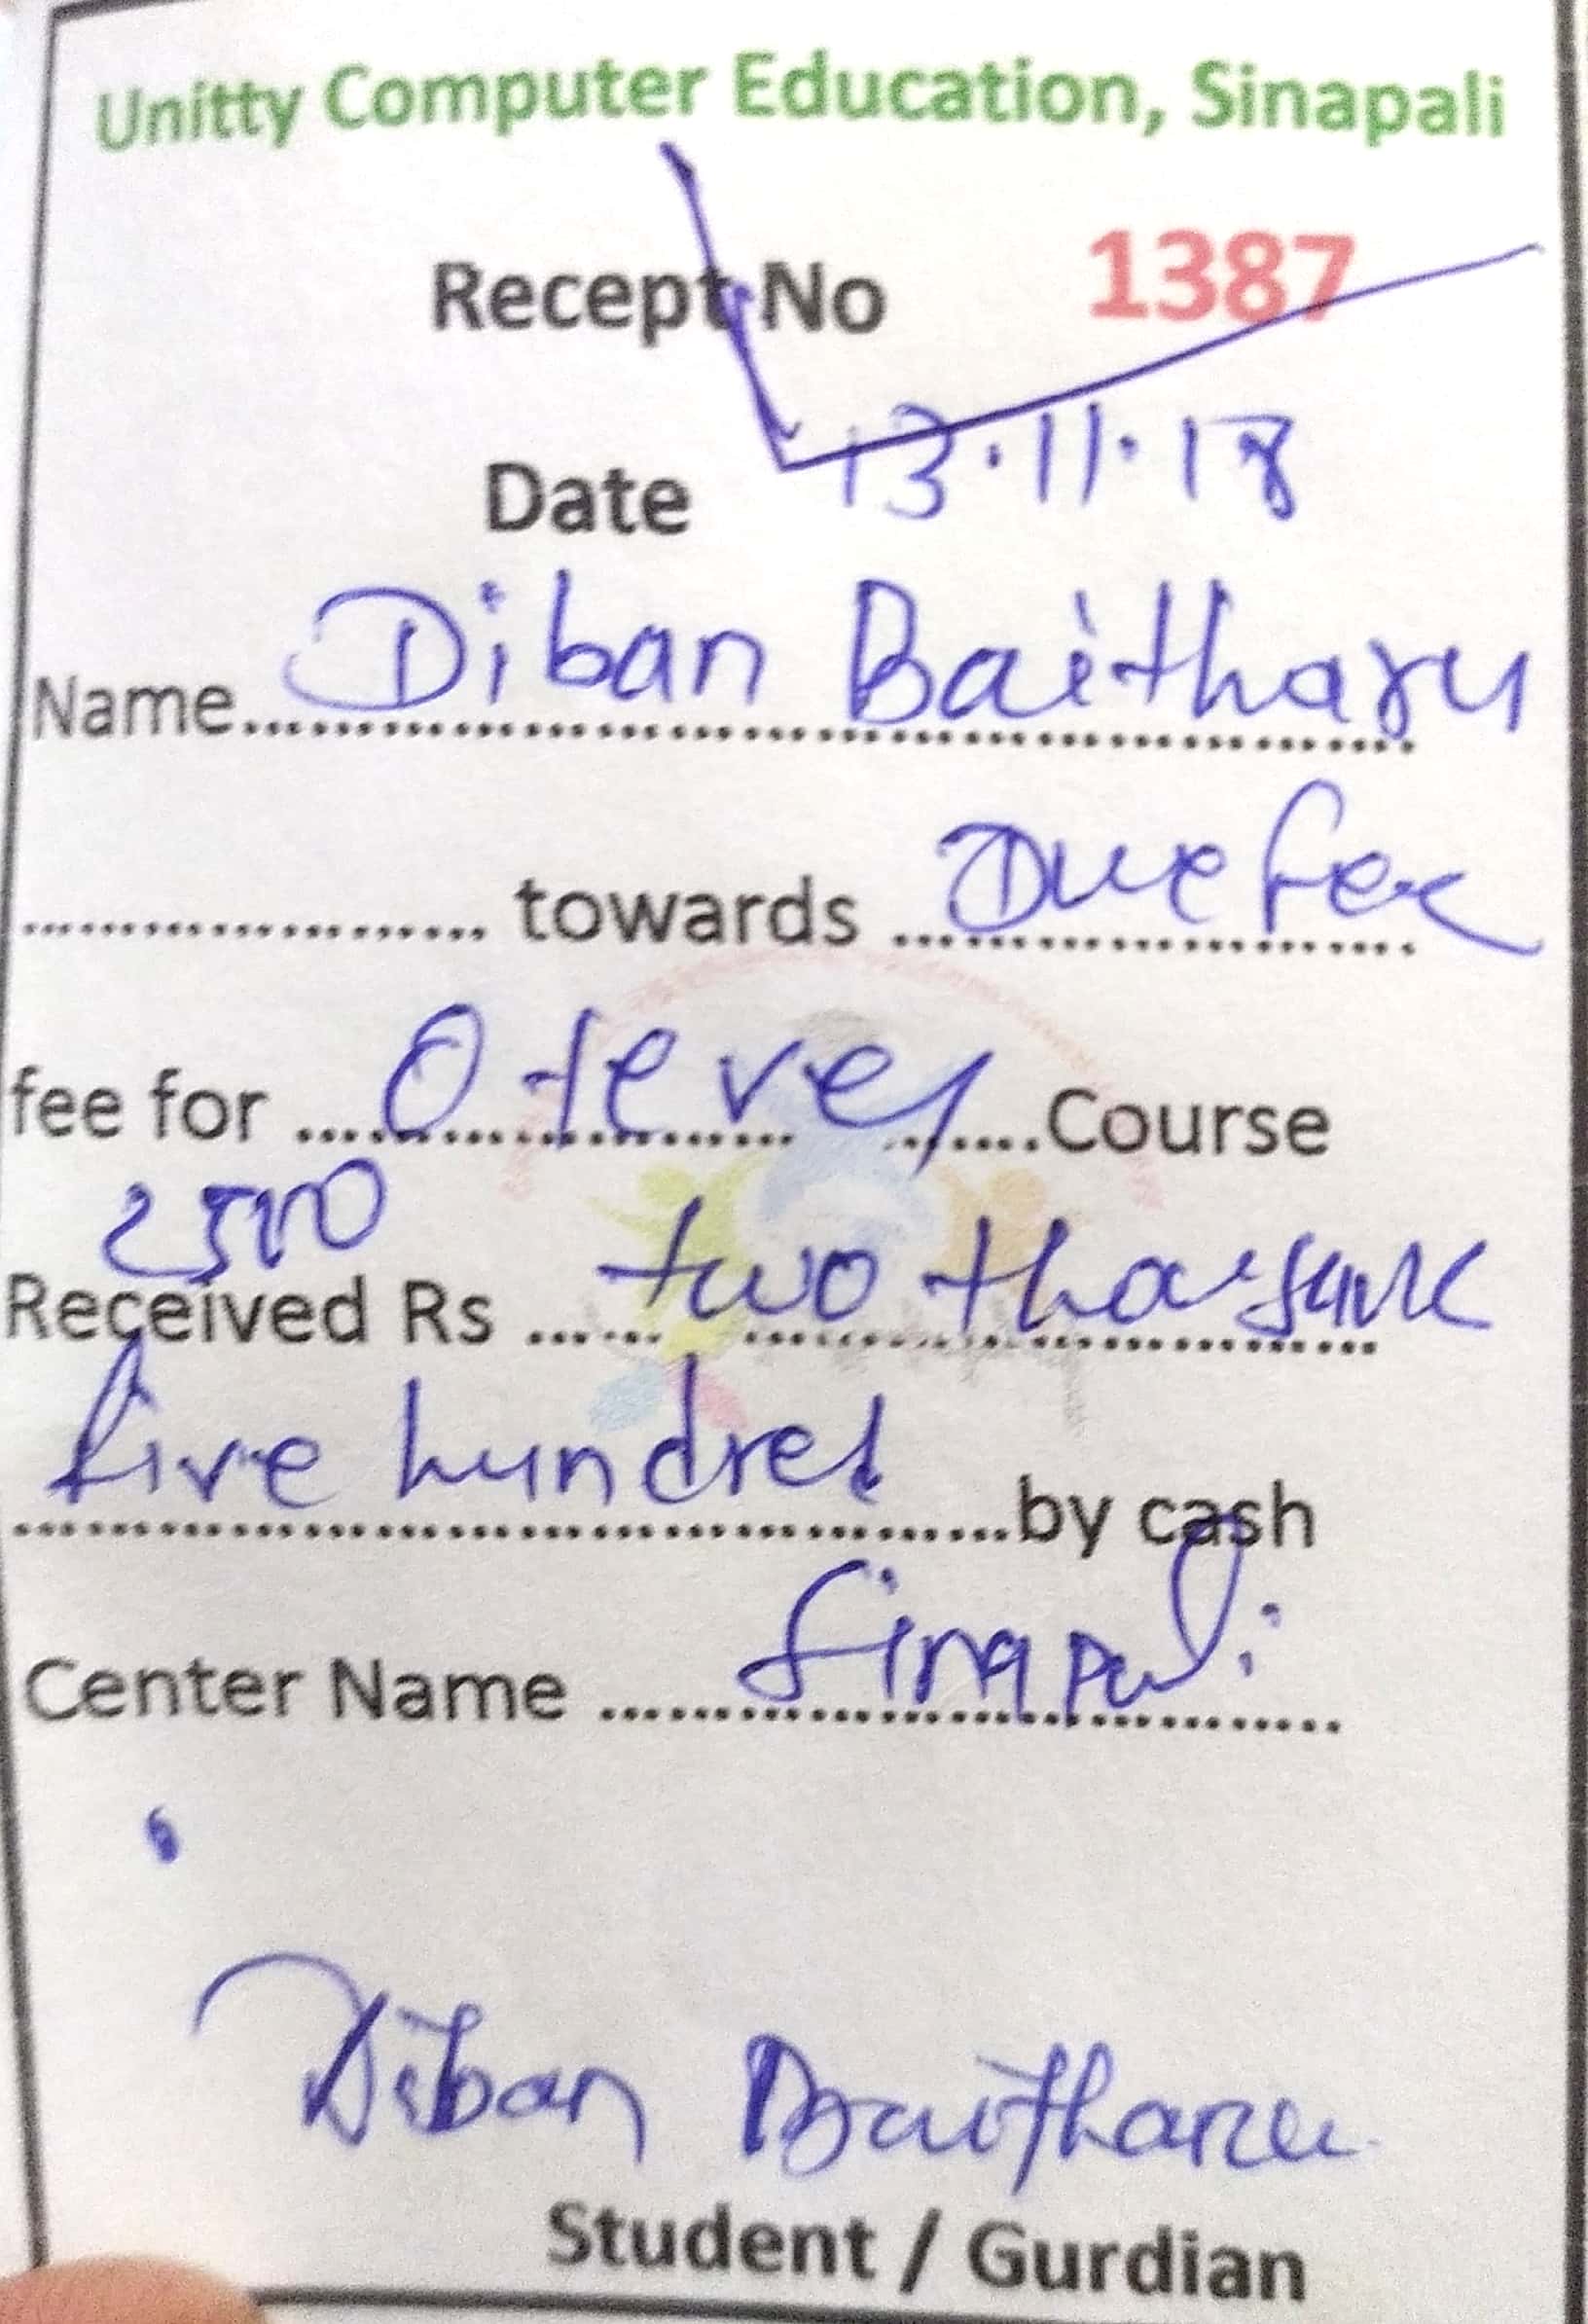 Unitty Computer Education, Sinapali
Recept No 1387
Date 13.11.18
Name Diban Baitharu
towards Due fee
fee for O level Course
2500
Received Rs two thousand
five hundred
by cash
Center Name Sinapali
Diban Baitharu
Student / Gurdian